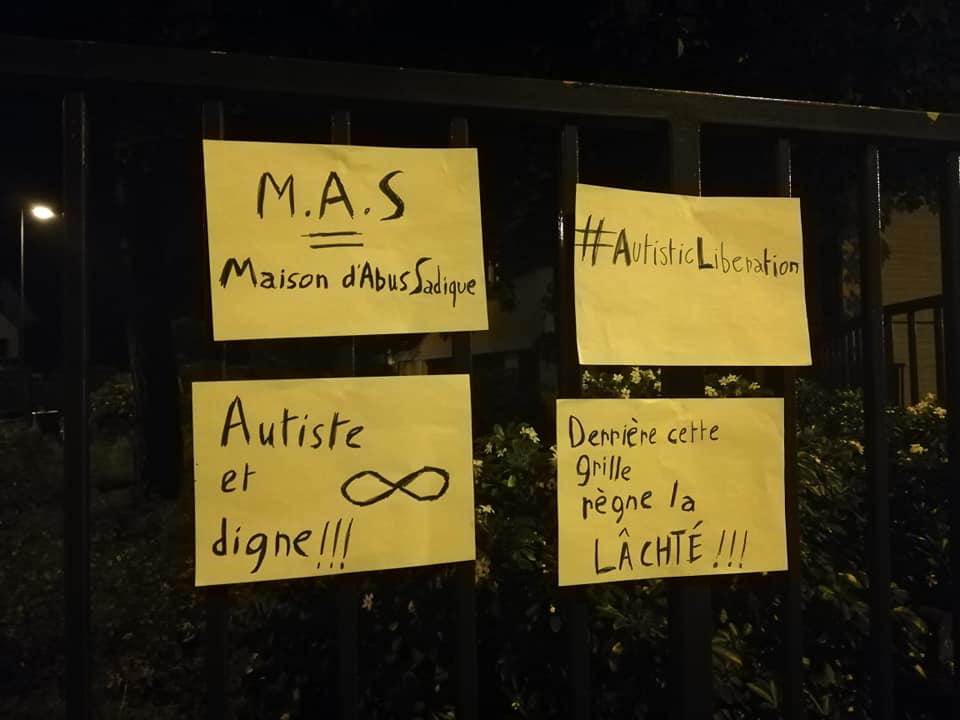 M.A.S
=
Maison d'Abus Sadique
#AutisticLiberation
Autiste
et ∞
digne!!!
Derrière cette
grille
règne la
LÂCHTÉ!!!